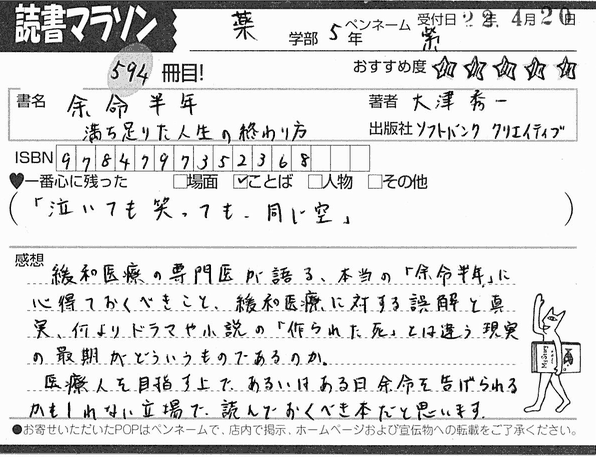 読書マラソン
薬 学部 5年 ペンネーム 紫 受付日 22年 4月20日
594 冊目! おすすめ度 ☆☆☆☆☆
書名 余命半年 著者 大津秀一
満ち足りた人生の終わり方 出版社 ソフトバンク クリエイティブ
ISBN 9784797352368
♥一番心に残った □場面 ☑ことば □人物 □その他
(「泣いても笑っても、同じ空」)
感想
緩和医療の専門医が語る、本当の「余命半年」に
心得ておくべきこと、緩和医療に対する誤解と真
実、何よりドラマや小説の「作られた死」とは違う現実
の最期がどういうものであるのか。
医療人を目指す上で、あるいはある日余命を告げられる
かもしれない立場で、読んでおくべき本だと思います。
●お寄せいただいたPOPはペンネームで、店内で掲示、ホームページおよび宣伝物への転載をご了承ください。